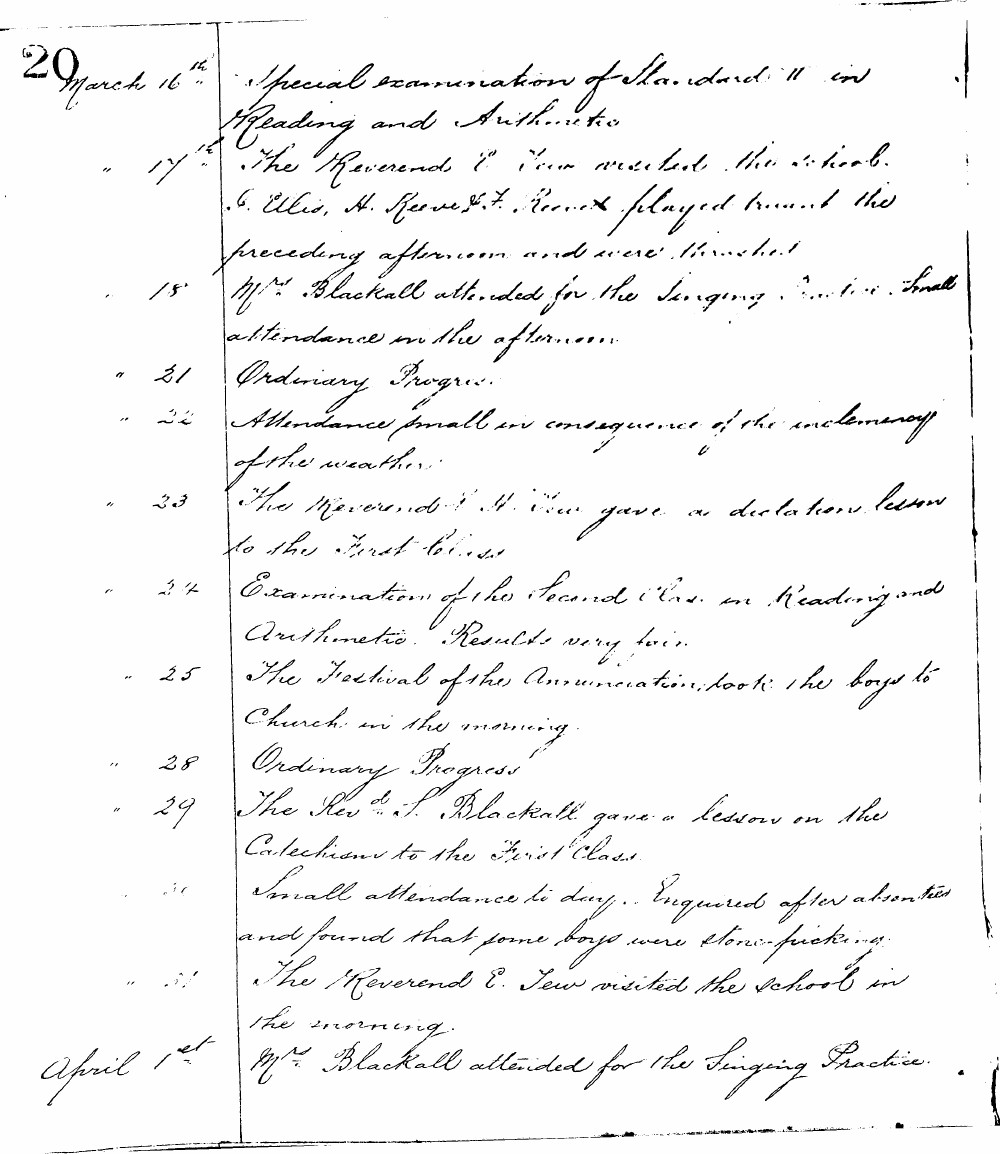 20
March 16th Special examination of Standard II in
Reading and Arithmetic
" 17th The Reverend E Tew visited the school.
Ellis, H. Reeve & F. Reeve played truant the
preceding afternoon and were thrashed
" 18 Mrs. Blackall attended for the Singing Practice. Small
attendance in the afternoon
" 21 Ordinary Progress
" 22 Attendance small in consequence of the inclemency
of the weather.
" 23 The Reverend E H. Tew gave a dictation lesson
to the First Class
" 24 Examination of the Second Class in Reading and
Arithmetic. Results very fair.
" 25 The Festival of the Annunciation, took the boys to
Church in the morning.
" 28 Ordinary Progress
" 29 The Revd. S. Blackall gave a lesson on the
Catechism to the First Class.
Small attendance to day. Enquired after absentees
and found that some boys were stone-picking.
" 31 The Reverend E. Tew visited the school in
the morning.
April 1st Mrs. Blackall attended for the Singing Practice.